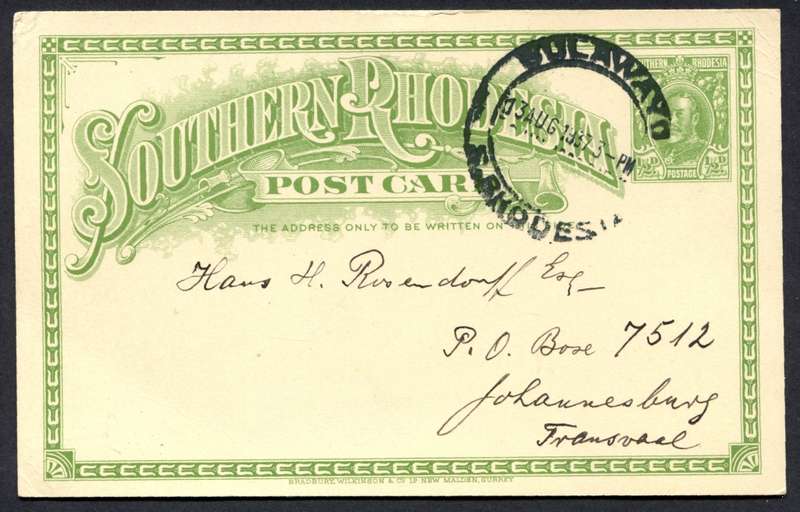 SOUTHERN RHODESIA
POST CARD
THE ADDRESS ONLY TO BE WRITTEN ON
BULAWAYO
13 AUG 1937 3-PM
S. RHODESIA
SOUTHERN RHODESIA
½D. ½D.
POSTAGE
Hans H. Rosendorff Esq-
P. O. Box 7512
Johannesburg
Transvaal
BRADBURY, WILKINSON & CO LD NEW MALDEN, SURREY.